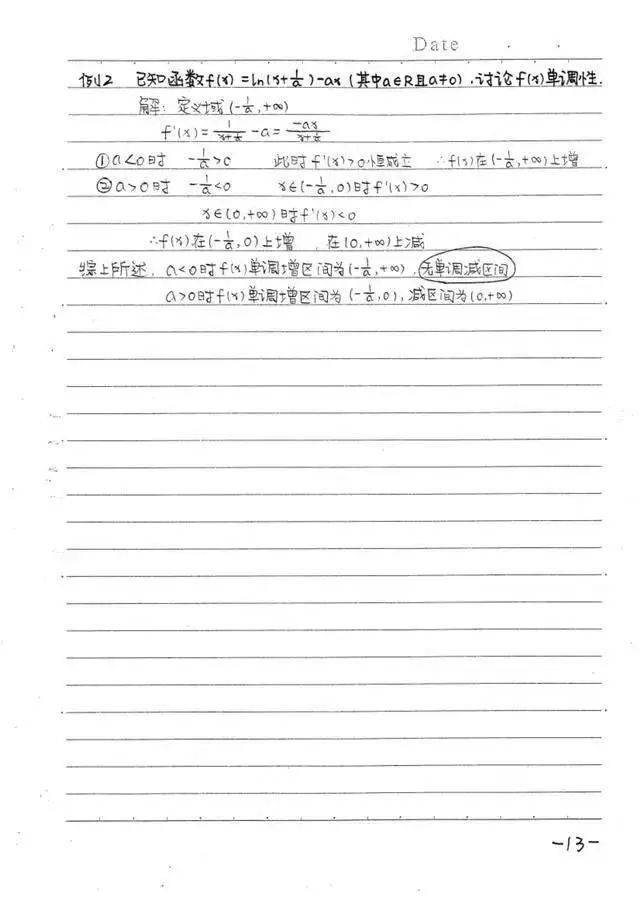 Date
例2 已知函数f(x)=ln(x+1/a)-ax(其中a∈R且a≠0).讨论f(x)单调性.
解:定义域(-1/a,+∞)
f'(x)=1/(x+1/a)-a=-ax/(x+1/a)
①a<0时 -1/a>0 此时f'(x)>0恒成立 ∴f(x)在(-1/a,+∞)上增
②a>0时 -1/a<0 x∈(-1/a,0)时f'(x)>0
x∈(0,+∞)时f'(x)<0
∴f(x)在(-1/a,0)上增,在(0,+∞)上减
综上所述,a<0时f(x)单调增区间为(-1/a,+∞),无单调减区间
a>0时f(x)单调增区间为(-1/a,0),减区间为(0,+∞)
-13-